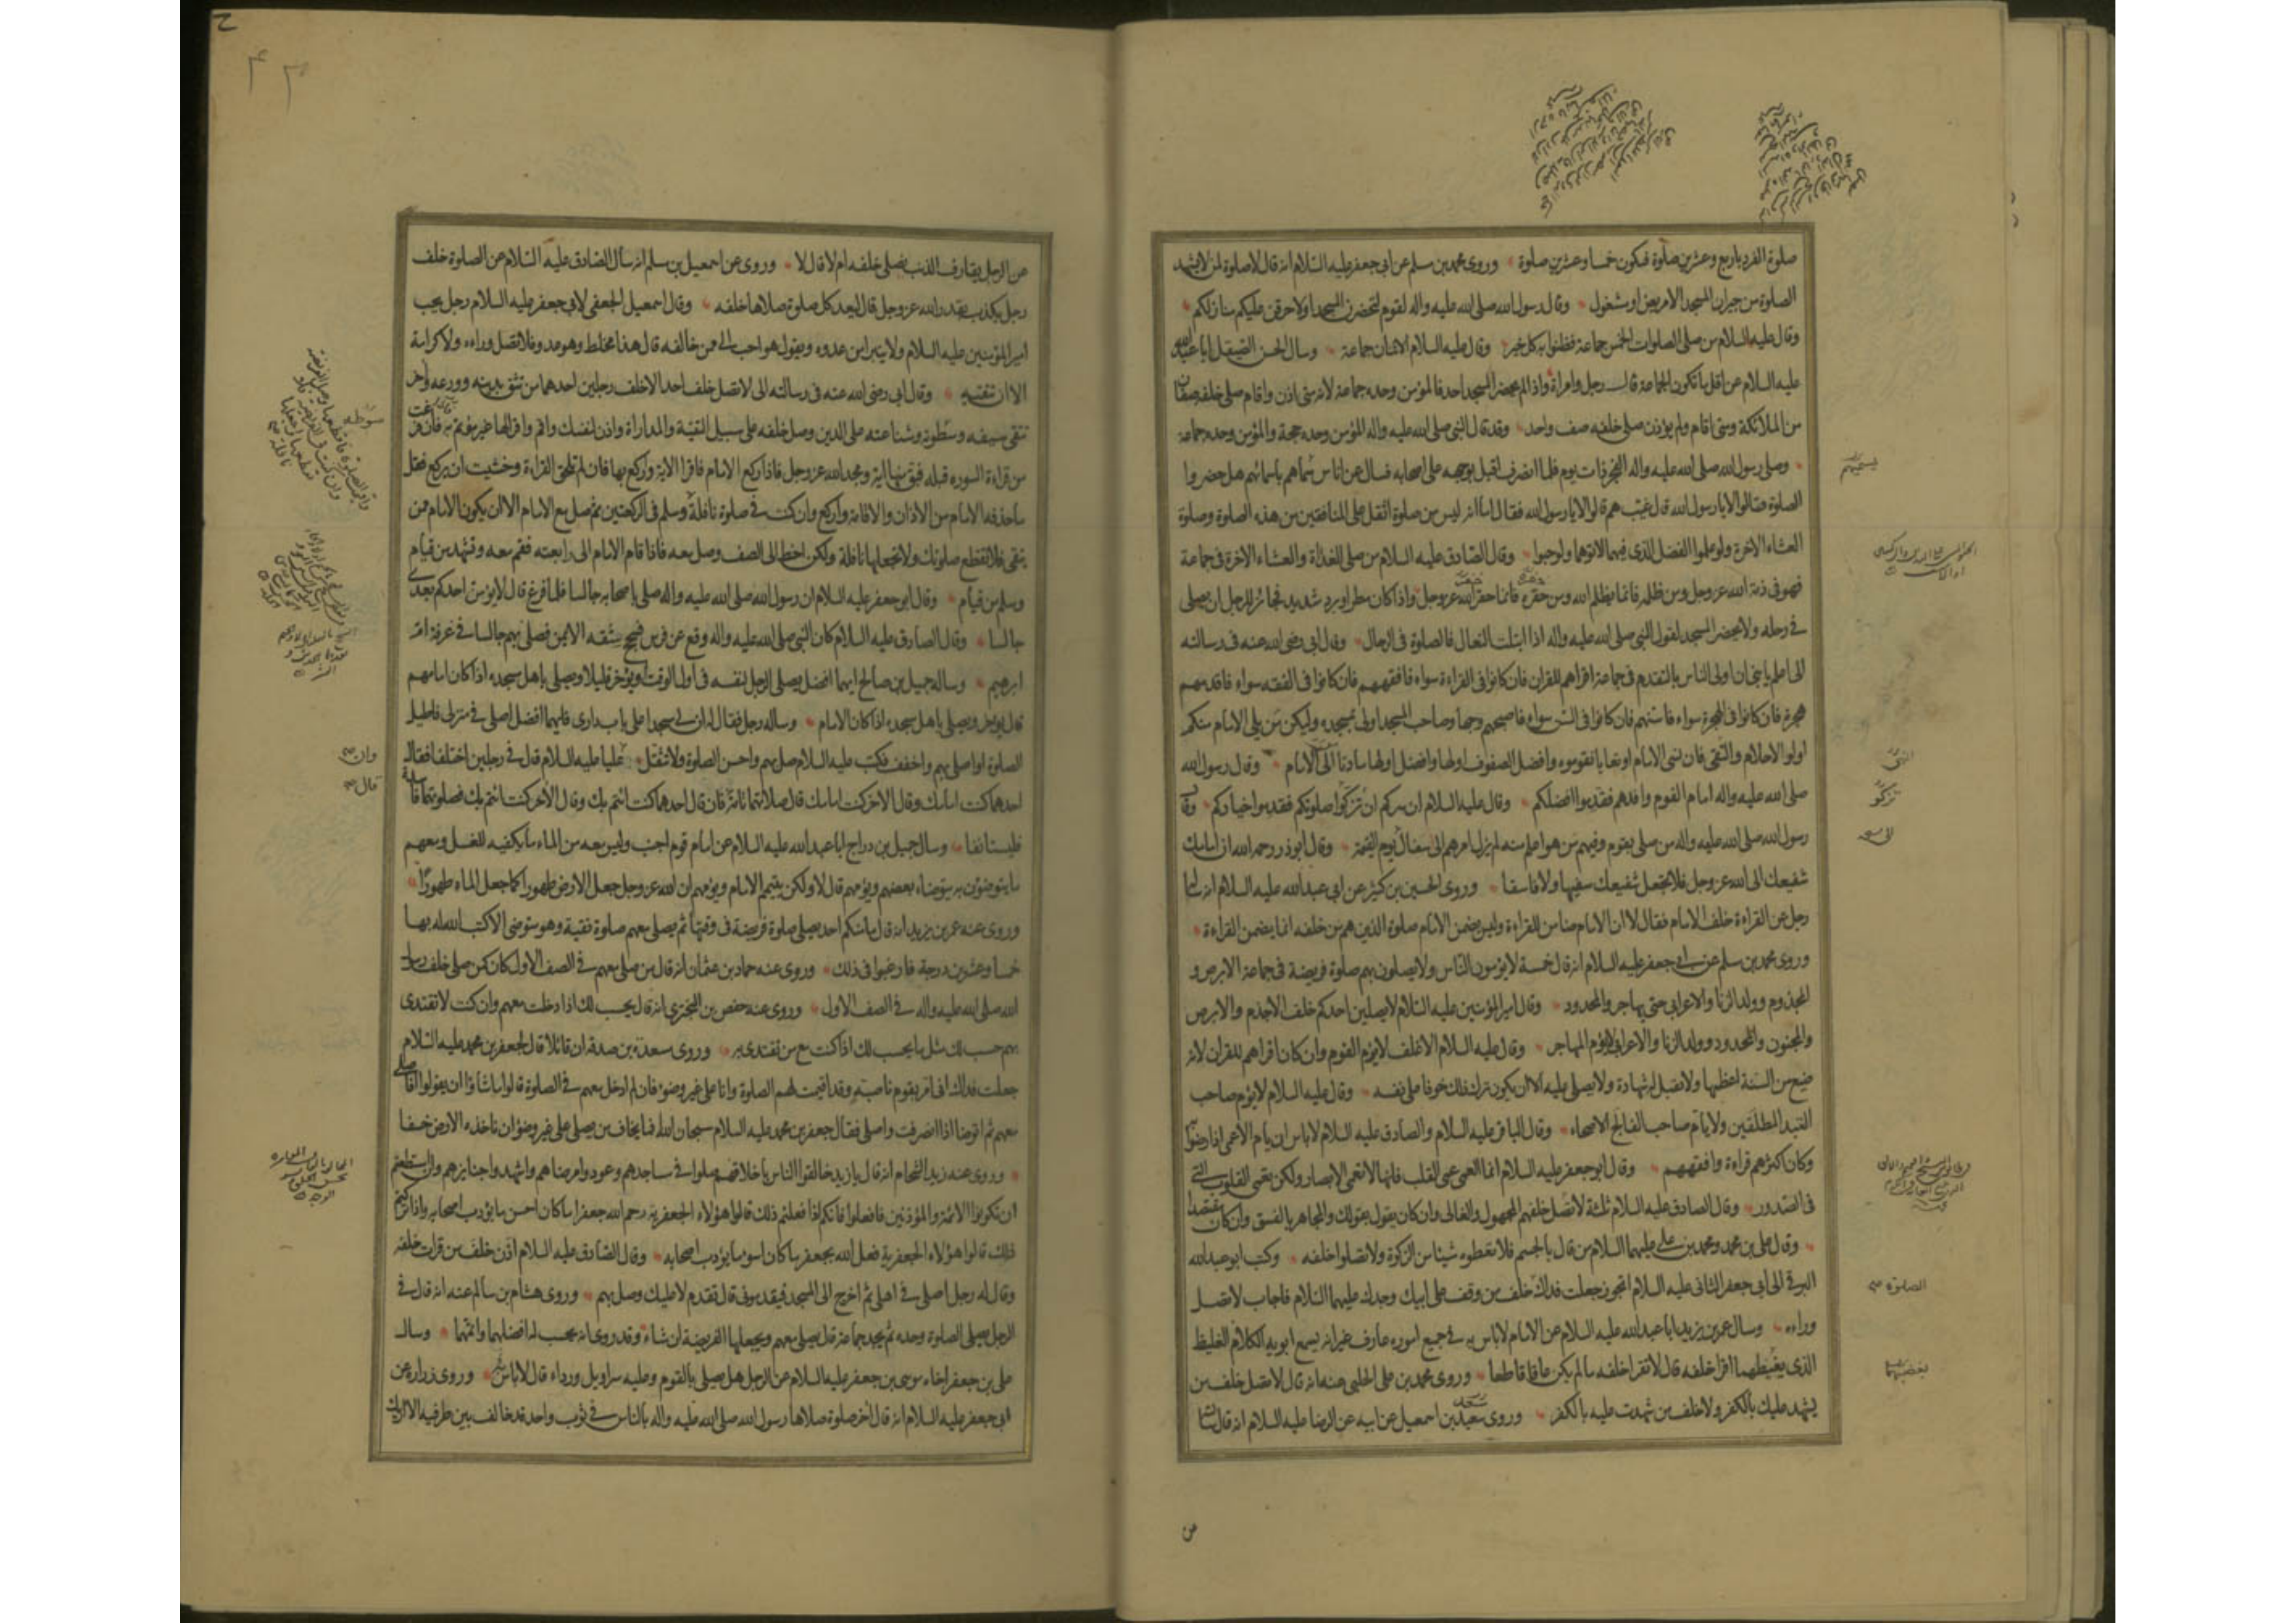 صلوة الفرد باربع وعشرين صلوة فيكون خمسا وعشرين صلوة وروى محمد بن مسلم عن ابي جعفر عليه السلام انه قال لا صلوة لمن لا يشهد
الصلوة من جيران المسجد الا مريض او مشغول وقال رسول الله صلى الله عليه واله لقوم لتحضرن المسجد او لاحرقن عليكم منازلكم
وقال عليه السلام من صلى الصلوات الخمس جماعة فظنوا به كل خير وقال عليه السلام الاثنان جماعة وسال الحسن الصيقل ابا عبدالله
عليه السلام عن اقل ما تكون الجماعة قال رجل وامراة واذا لم يحضر المسجد احد فالمؤمن وحده جماعة لانه متى اذن واقام صلى خلفه صفان
من الملائكة ومتى اقام ولم يؤذن صلى خلفه صف واحد وقد قال النبي صلى الله عليه واله المؤمن وحده حجة والمؤمن وحده جماعة
وصلى رسول الله صلى الله عليه واله الفجر ذات يوم فلما انصرف اقبل بوجهه على اصحابه فسال عن اناس سماهم باسمائهم هل حضروا
الصلوة فقالوا لا يا رسول الله قال غيب هم قالوا لا يا رسول الله فقال اما انه ليس من صلوة اثقل على المنافقين من هذه الصلوة وصلوة
العشاء الاخرة ولو علموا الفضل الذي فيهما لاتوهما ولو حبوا وقال الصادق عليه السلام من صلى الغداة والعشاء الاخرة في جماعة
فهو في ذمة الله عز وجل ومن ظلمه فانما يظلم الله ومن حقره فانما حقر الله عز وجل واذا كان مطر او برد شديد فجائز للرجل ان يصلى
في رحله ولا يحضر المسجد لقول النبي صلى الله عليه واله اذا ابتلت النعال فالصلوة في الرحال وقال ابي رضى الله عنه في رسالته
الى اعلم يا بني ان اولى الناس بالتقدم في جماعة اقراهم للقران فان كانوا في القراءة سواء فافقههم فان كانوا في الفقه سواء فاقدمهم
هجرة فان كانوا في الهجرة سواء فاسنهم فان كانوا في السن سواء فاصبحهم وجها وصاحب المسجد اولى بمسجده وليكن من يلى الامام منكم
اولو الاحلام والتقى فان نسى الامام او تعايا تقوموه وافضل الصفوف اولها وافضل اولها ما دنا الى الامام وقال رسول الله
صلى الله عليه واله امام القوم وافدهم فقدموا افضلكم وقال عليه السلام ان سركم ان تزكوا صلوتكم فقدموا خياركم وقال
رسول الله صلى الله عليه واله من صلى بقوم وفيهم من هو اعلم منه لم يزل امرهم الى سفال الى يوم القيمة وقال ابو ذر رحمه الله ان امامك
شفيعك الى الله عز وجل فلا تجعل شفيعك سفيها ولا فاسقا وروى الحسين بن كثير عن ابي عبدالله عليه السلام انه ساله
رجل عن القراءة خلف الامام فقال لا ان الامام ضامن للقراءة وليس يضمن الامام صلوة الذين هم من خلفه انما يضمن القراءة
وروى محمد بن مسلم عن ابي جعفر عليه السلام انه قال خمسة لا يؤمون الناس ولا يصلون بهم صلوة فريضة في جماعة الابرص و
المجذوم وولد الزنا والاعرابي حتى يهاجر والمحدود وقال امير المؤمنين عليه السلام لا يصلين احدكم خلف الاجذم والابرص
والمجنون والمحدود وولد الزنا والاعرابي لا يؤم المهاجر وقال عليه السلام الاغلف لا يؤم القوم وان كان اقراهم للقران لانه
ضيع من السنة اعظمها ولا تقبل له شهادة ولا يصلى عليه الا ان يكون ترك ذلك خوفا على نفسه وقال عليه السلام لا يؤم صاحب
القيد المطلقين ولا يؤم صاحب الفالج الاصحاء وقال الباقر عليه السلام والصادق عليه السلام لا باس ان يؤم الاعمى اذا رضوا به
وكان اكثرهم قراءة وافقههم وقال ابو جعفر عليه السلام انما العمى عمى القلب فانها لا تعمى الابصار ولكن تعمى القلوب التي
في الصدور وقال الصادق عليه السلام ثلثة لا تصل خلفهم المجهول والغالى وان كان يقول بقولك والمجاهر بالفسق وان كان مقتصدا
وقال علي بن محمد ومحمد بن علي عليهما السلام من قال بالجسم فلا تعطوه شيئا من الزكوة ولا تصلوا خلفه وكتب ابو عبدالله
البرقي الى ابي جعفر الثاني عليه السلام اتجوز جعلت فداك خلف من وقف على ابيك وجدك عليهما السلام فاجاب لا تصل
وراءه وسال عمر بن يزيد ابا عبدالله عليه السلام عن الامام لا باس به في جميع اموره عارف غير انه يسمع ابويه الكلام الغليظ
الذي يغيظهما اقرا خلفه قال لا تقرا خلفه ما لم يكن عاقا قاطعا وروى محمد بن علي الحلبي عنه انه قال لا تصل خلف من
يشهد عليك بالكفر ولا خلف من شهدت عليه بالكفر وروى سعيد بن اسمعيل عن ابيه عن الرضا عليه السلام انه قال سالته
عن
يسميهم
تزكو
الصلوة
عن الرجل يقارف الذنب يصلى خلفه ام لا قال لا وروى عن اسمعيل بن مسلم انه سال الصادق عليه السلام عن الصلوة خلف
رجل يكذب بقدر الله عز وجل قال ليعد كل صلوة صلاها خلفه وقال اسمعيل الجعفي لابي جعفر عليه السلام رجل يحب
امير المؤمنين عليه السلام ولا يتبرا من عدوه ويقول هو احب الى ممن خالفه قال هذا مخلط وهو عدو فلا تصل وراءه ولا كرامة
الا ان تتقيه وقال ابي رضى الله عنه في رسالته الى لا تصل خلف احد الا خلف رجلين احدهما من تثق بدينه وورعه واخر
تتقى سيفه وسطوته وشناعته على الدين وصل خلفه على سبيل التقية والمداراة واذن لنفسك واقم واقرا لها غير مؤتم به فان فرغت
من قراءة السورة قبله فبق منها اية ومجد الله عز وجل فاذا ركع الامام فاقرا الاية واركع بها فان لم تلحق القراءة وخشيت ان يركع فقل
ما حذفه الامام من الاذان والاقامة واركع وان كنت في صلوة نافلة وسلم في الركعتين ثم صل مع الامام الا ان يكون الامام ممن
يتقى فلا تقطع صلوتك ولا تجعلها نافلة ولكن اخط الى الصف وصل معه فاذا قام الامام الى رابعته فقم معه وتشهد من قيام
وسلم من قيام وقال ابو جعفر عليه السلام ان رسول الله صلى الله عليه واله صلى باصحابه جالسا فلما فرغ قال لا يؤمن احدكم بعدى
جالسا وقال الصادق عليه السلام كان النبي صلى الله عليه واله وقع عن فرس فسحج شقه الايمن فصلى بهم جالسا في غرفة ام
ابرهيم وساله جميل بن صالح ايهما افضل يصلى الرجل لنفسه في اول الوقت او يؤخر قليلا ويصلى باهل مسجده اذا كان امامهم
قال يؤخر ويصلى باهل مسجده اذا كان الامام وساله رجل فقال له ان لي مسجدا على باب دارى فايهما افضل اصلى في منزلى فاطيل
الصلوة او اصلى بهم واخفف فكتب عليه السلام صل بهم واحسن الصلوة ولا تثقل عليا عليه السلام قال في رجلين اختلفا فقال
احدهما كنت امامك وقال الاخر كنت امامك قال صلاتهما تامة فان قال احدهما كنت ائتم بك وقال الاخر كنت ائتم بك فصلوتهما فاسدة
فليستانفا وسال جميل بن دراج ابا عبدالله عليه السلام عن امام قوم اجنب وليس معه من الماء ما يكفيه للغسل ومعهم
ما يتوضؤن به يتوضاء بعضهم ويؤمهم قال لا ولكن يتيمم الامام ويؤمهم ان الله عز وجل جعل الارض طهورا كما جعل الماء طهورا
وروى عنه عمر بن يزيد انه قال ما منكم احد يصلى صلوة فريضة في وقتها ثم يصلى معهم صلوة تقية وهو متوضى الا كتب الله له بها
خمسا وعشرين درجة فارغبوا في ذلك وروى عنه حماد بن عثمان انه قال من صلى معهم في الصف الاول كان كمن صلى خلف رسول
الله صلى الله عليه واله في الصف الاول وروى عنه حفص بن البخترى انه قال يحسب لك اذا دخلت معهم وان كنت لا تقتدى
بهم حسب لك مثل ما يحسب لك اذا كنت مع من تقتدى به وروى مسعدة بن صدقة ان قائلا قال لجعفر بن محمد عليه السلام
جعلت فداك انى امر بقوم ناصبة وقد اقيمت لهم الصلوة وانا على غير وضوء فان لم ادخل معهم في الصلوة قالوا ما شاؤا ان يقولوا افاصلى
معهم ثم اتوضا اذا انصرفت واصلى فقال جعفر بن محمد عليه السلام سبحان الله فما يخاف من يصلى على غير وضوء ان تاخذه الارض خسفا
وروى عنه زيد الشحام انه قال يا زيد خالقوا الناس باخلاقهم صلوا في مساجدهم وعودوا مرضاهم واشهدوا جنايزهم وان استطعتم
ان تكونوا الائمة والمؤذنين فافعلوا فانكم اذا فعلتم ذلك قالوا هؤلاء الجعفرية رحم الله جعفرا ما كان احسن ما يؤدب اصحابه واذا تركتم
ذلك قالوا هؤلاء الجعفرية فعل الله بجعفر ما كان اسوء ما يؤدب اصحابه وقال الصادق عليه السلام اذن خلف من قرات خلفه
وقال له رجل اصلى في اهلى ثم اخرج الى المسجد فيقدمونى قال تقدم لا عليك وصل بهم وروى هشام بن سالم عنه انه قال في
الرجل يصلى الصلوة وحده ثم يجد جماعة قال يصلى معهم ويجعلها الفريضة ان شاء وقد روى انه يحسب له افضلهما واتمهما وسال
علي بن جعفر اخاه موسى بن جعفر عليه السلام عن الرجل هل يصلى بالقوم وعليه سراويل ورداء قال لا باس به وروى زرارة عن
ابي جعفر عليه السلام انه قال اخر صلوة صلاها رسول الله صلى الله عليه واله بالناس في ثوب واحد قد خالف بين طرفيه الا اريك
وان
قال